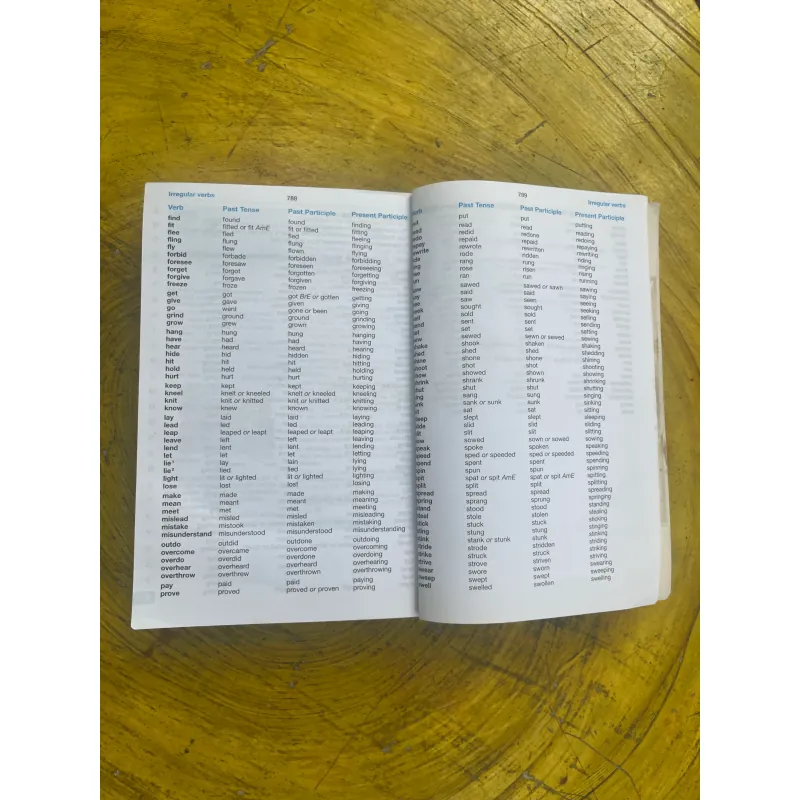 Irregular verbs 788
Verb Past Tense Past Participle Present Participle
find found found finding
fit fitted or fit AmE fit or fitted fitting
flee fled fled fleeing
fling flung flung flinging
fly flew flown flying
forbid forbade forbidden forbidding
foresee foresaw foreseen foreseeing
forget forgot forgotten forgetting
forgive forgave forgiven forgiving
freeze froze frozen freezing
get got got BrE or gotten getting
give gave given giving
go went gone or been going
grind ground ground grinding
grow grew grown growing
hang hung hung hanging
have had had having
hear heard heard hearing
hide hid hidden hiding
hit hit hit hitting
hold held held holding
hurt hurt hurt hurting
keep kept kept keeping
kneel knelt or kneeled knelt or kneeled kneeling
knit knit or knitted knit or knitted knitting
know knew known knowing
lay laid laid laying
lead led led leading
leap leaped or leapt leaped or leapt leaping
leave left left leaving
lend lent lent lending
let let let letting
lie¹ lay lain lying
lie² lied lied lying
light lit or lighted lit or lighted lighting
lose lost lost losing
make made made making
mean meant meant meaning
meet met met meeting
mislead misled misled misleading
mistake mistook mistaken mistaking
misunderstand misunderstood misunderstood misunderstanding
outdo outdid outdone outdoing
overcome overcame overcome overcoming
overdo overdid overdone overdoing
overhear overheard overheard overhearing
overthrow overthrew overthrown overthrowing
pay paid paid paying
prove proved proved or proven proving
789 Irregular verbs
Past Tense Past Participle Present Participle
put put putting
read read reading
redid redone redoing
repaid repaid repaying
rewrote rewritten rewriting
rode ridden riding
rang rung ringing
rose risen rising
ran run running
sawed sawed or sawn sawing
said said saying
saw seen seeing
sought sought seeking
sold sold selling
sent sent sending
set set setting
sewed sewn or sewed sewing
shook shaken shaking
shed shed shedding
shone shone shining
shot shot shooting
showed shown showing
shrank shrunk shrinking
shut shut shutting
sang sung singing
sank or sunk sunk sinking
sat sat sitting
slept slept sleeping
slid slid sliding
slit slit slitting
sowed sown or sowed sowing
spoke spoken speaking
sped or speeded sped or speeded speeding
spent spent spending
spun spun spinning
spat or spit AmE spat or spit AmE spitting
split split splitting
spread spread spreading
sprang sprung springing
stood stood standing
stole stolen stealing
stuck stuck sticking
stung stung stinging
stank or stunk stunk stinking
strode stridden striding
struck struck striking
strove striven striving
swore sworn swearing
swept swept sweeping
swelled swollen swelling